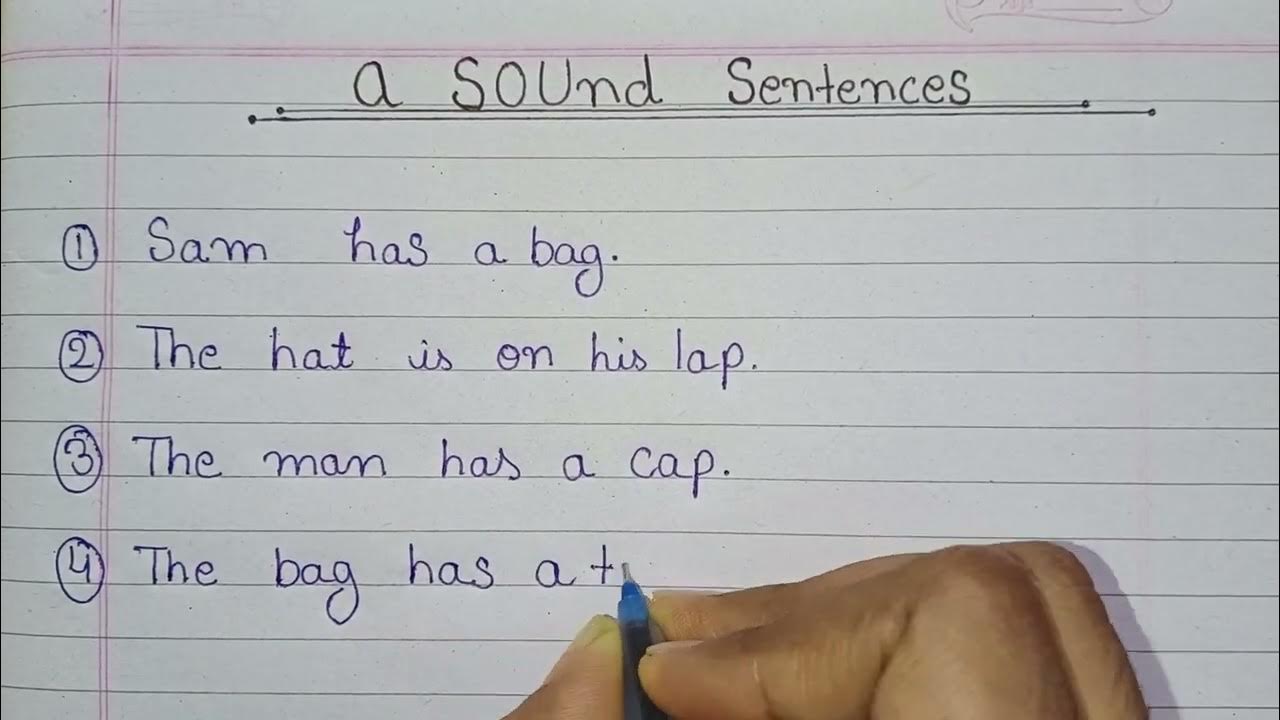 a SOUnd Sentences
① Sam has a bag.
② The hat is on his lap.
③ The man has a cap.
④ The bag has a t